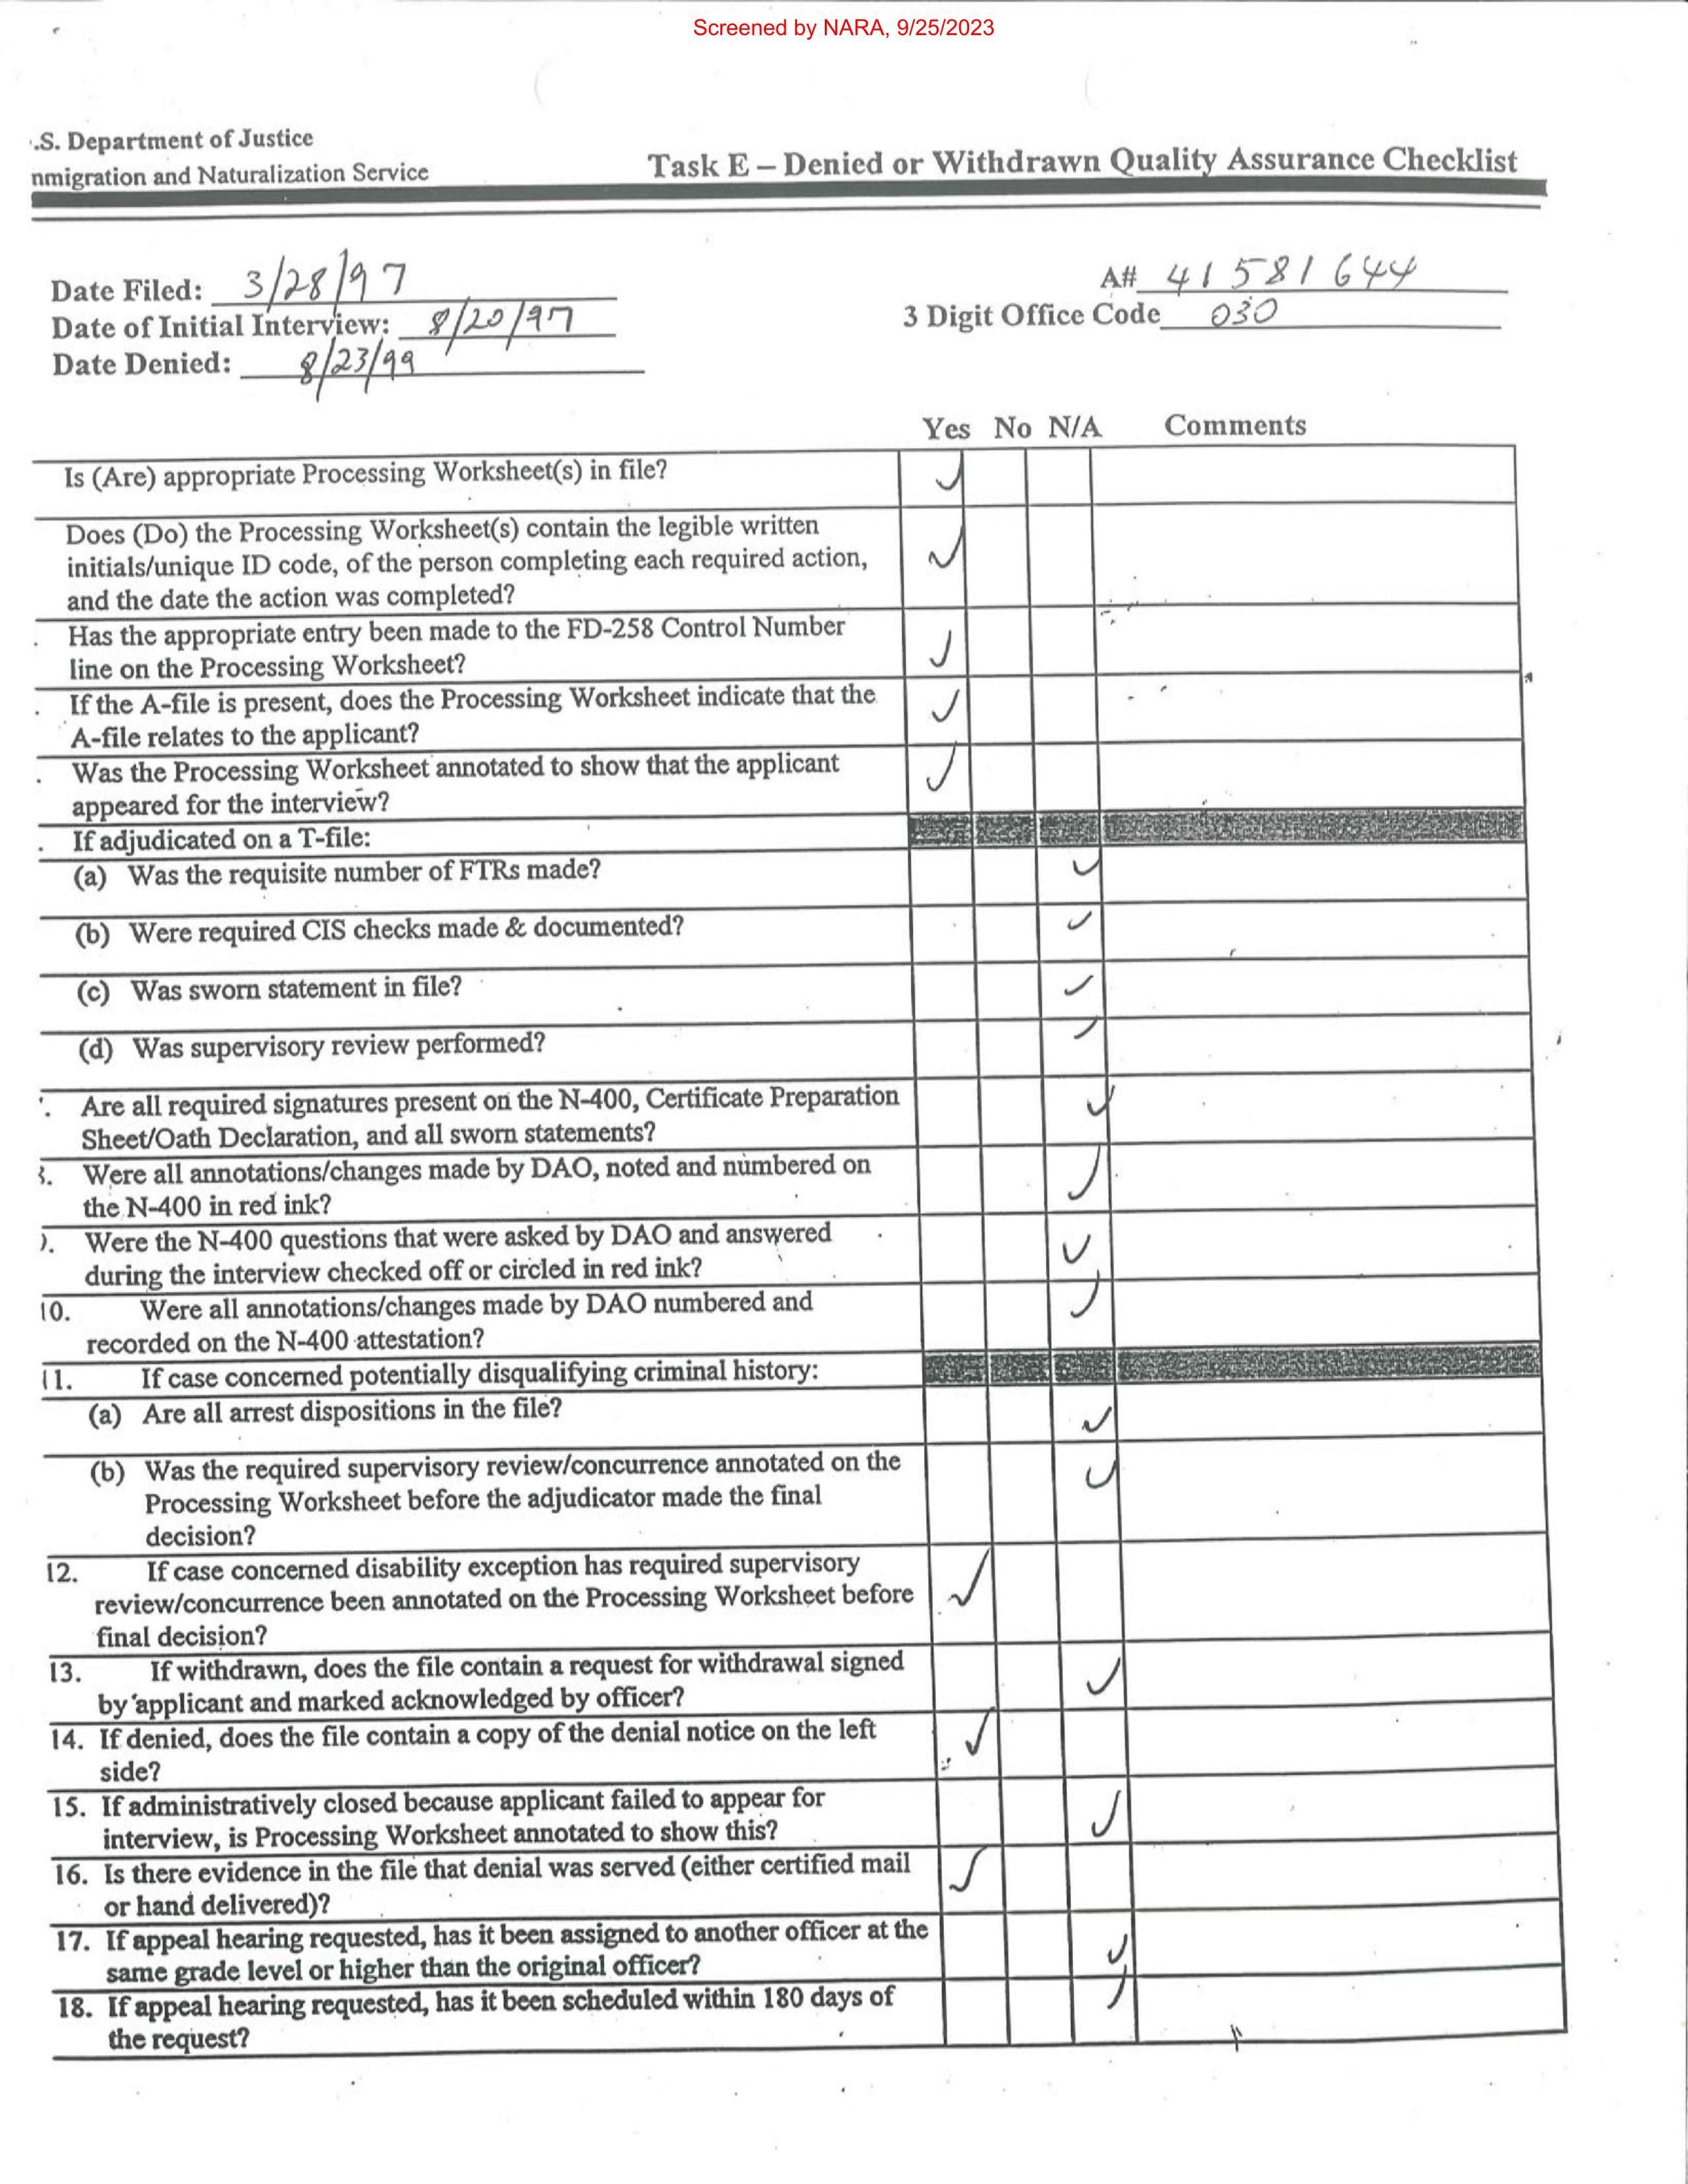 Screened by NARA, 9/25/2023
.S. Department of Justice
nmigration and Naturalization Service
Task E – Denied or Withdrawn Quality Assurance Checklist
Date Filed: 3/28/97
A# 41581644
Date of Initial Interview: 8/20/97
3 Digit Office Code 030
Date Denied: 8/23/99
Yes No N/A Comments
Is (Are) appropriate Processing Worksheet(s) in file? ✓
Does (Do) the Processing Worksheet(s) contain the legible written
initials/unique ID code, of the person completing each required action, ✓
and the date the action was completed?
. Has the appropriate entry been made to the FD-258 Control Number
line on the Processing Worksheet? ✓
. If the A-file is present, does the Processing Worksheet indicate that the
A-file relates to the applicant? ✓
. Was the Processing Worksheet annotated to show that the applicant
appeared for the interview? ✓
. If adjudicated on a T-file:
(a) Was the requisite number of FTRs made? ✓
(b) Were required CIS checks made & documented? ✓
(c) Was sworn statement in file? ✓
(d) Was supervisory review performed? ✓
. Are all required signatures present on the N-400, Certificate Preparation
Sheet/Oath Declaration, and all sworn statements? ✓
. Were all annotations/changes made by DAO, noted and numbered on
the N-400 in red ink? ✓
. Were the N-400 questions that were asked by DAO and answered
during the interview checked off or circled in red ink? ✓
10. Were all annotations/changes made by DAO numbered and
recorded on the N-400 attestation? ✓
11. If case concerned potentially disqualifying criminal history:
(a) Are all arrest dispositions in the file? ✓
(b) Was the required supervisory review/concurrence annotated on the ✓
Processing Worksheet before the adjudicator made the final
decision?
12. If case concerned disability exception has required supervisory
review/concurrence been annotated on the Processing Worksheet before ✓
final decision?
13. If withdrawn, does the file contain a request for withdrawal signed
by applicant and marked acknowledged by officer? ✓
14. If denied, does the file contain a copy of the denial notice on the left ✓
side?
15. If administratively closed because applicant failed to appear for
interview, is Processing Worksheet annotated to show this? ✓
16. Is there evidence in the file that denial was served (either certified mail ✓
or hand delivered)?
17. If appeal hearing requested, has it been assigned to another officer at the
same grade level or higher than the original officer? ✓
18. If appeal hearing requested, has it been scheduled within 180 days of ✓
the request?